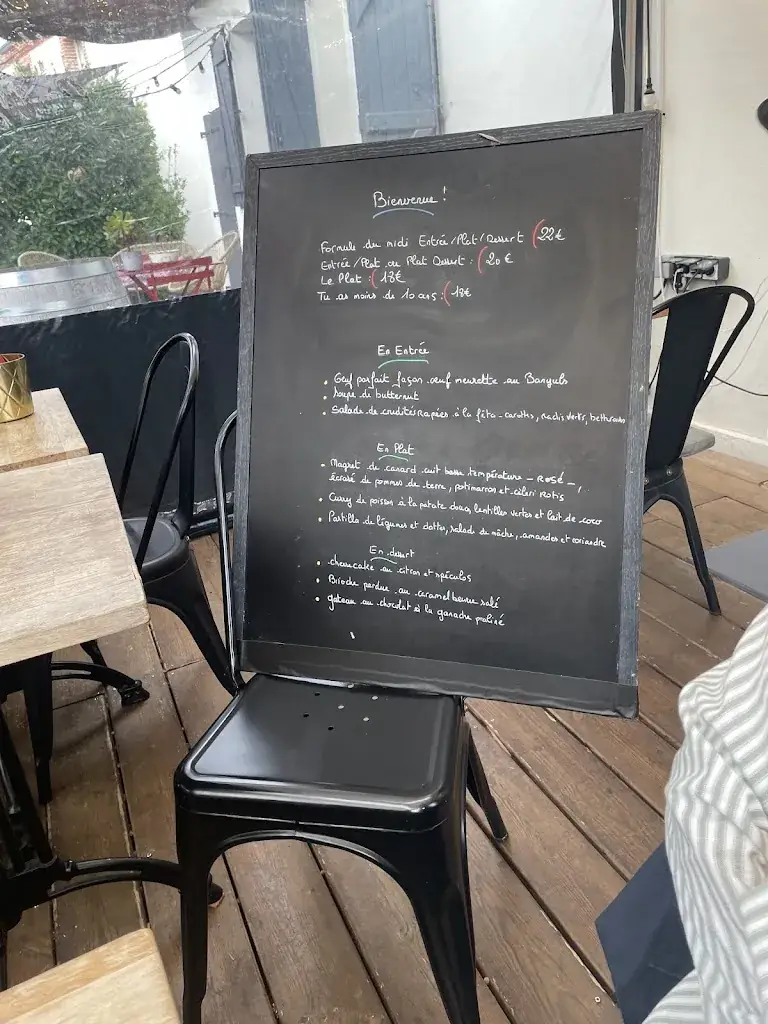 Bienvenue !
Formule du midi Entrée/Plat/Dessert (22€
Entrée/Plat ou Plat Dessert : (20 €
Le Plat : (18€
Tu as moins de 10 ans : (18€
En Entrée
• Oeuf parfait façon oeuf meurette au Banyuls
• Soupe de butternut
• Salade de crudités rapées à la féta - carottes, radis verts, betteraves
En Plat
• Magret de canard cuit basse température - ROSÉ -,
écrasé de pommes de terre, potimarron et céleri rotis
• Curry de poisson à la patate douce, lentilles vertes et lait de coco
• Pastilla de légumes et dattes, salade de mâche, amandes et coriandre
En dessert
• cheesecake au citron et spéculos
• Brioche perdue au caramel beurre salé
• gateau au chocolat à la ganache praliné